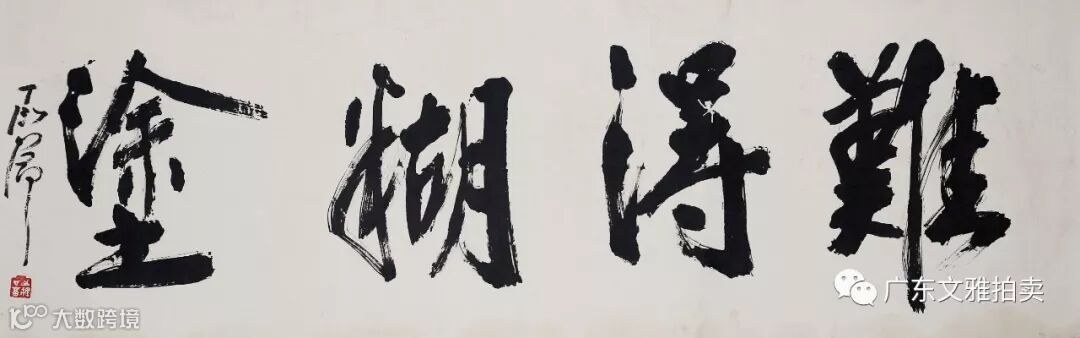 難得糊塗
广东文雅拍卖
大数跨境